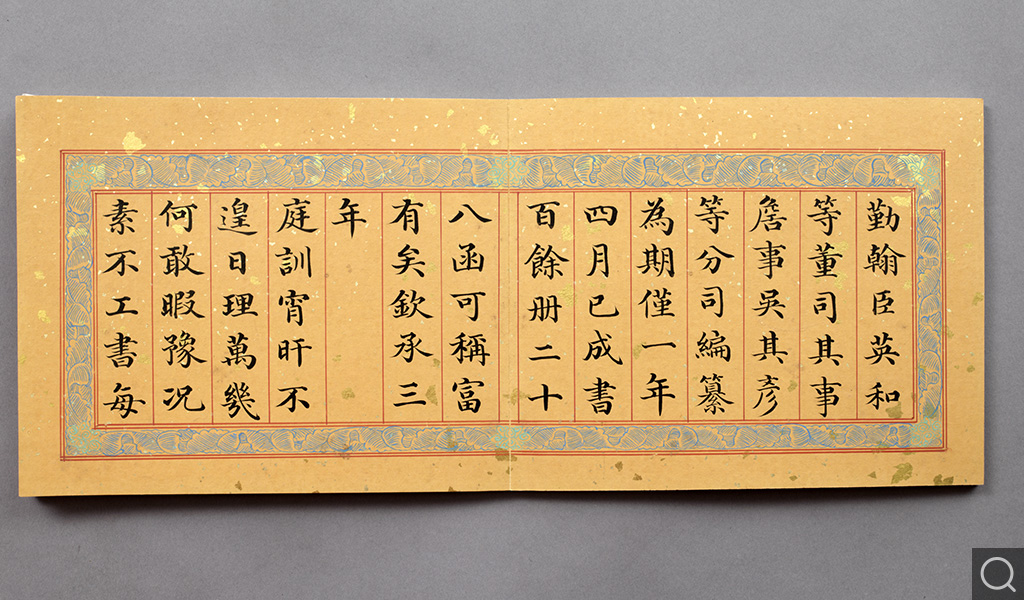 勤翰臣英和
等董司其事
詹事吳其彥
等分司編纂
為期僅一年
四月已成書
百餘册二十
八函可稱富
有矣欽承三
年
庭訓宵旰不
遑日理萬幾
何敢暇豫况
素不工書每